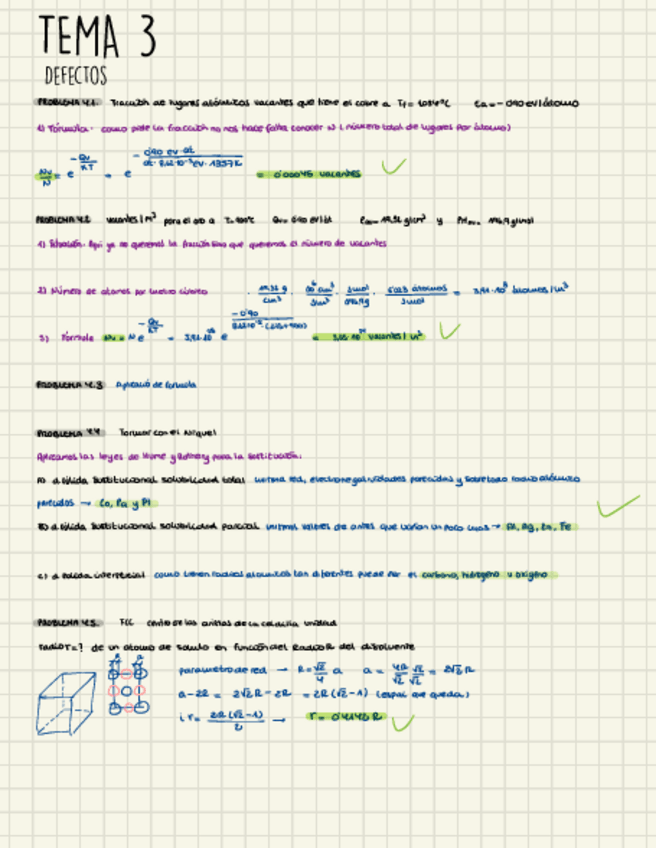 TEMA 3
DEFECTOS
PROBLEMA 4.1. Fracción de lugares atómicos vacantes que tiene el cobre a Tf = 1084ºC Ea = -0,90 eV/átomo
1) Fórmula. como pide la fracción no nos hace falta conocer N (número total de lugares por átomo)
Nv/N = e^(-Qv/KT) = e = 0'00045 vacantes
PROBLEMA 4.2 vacantes/m³ para el oro a
1) Situación. Aquí ya no queremos la fracción sino que queremos el número de vacantes
2) Número de átomos por metro cúbico
3) Fórmula Nv = N e^(-Qv/KT)
PROBLEMA 4.3 Aplicación de fórmula
PROBLEMA 4.4 Formar con el Níquel
Aplicamos las leyes de Hume y Rothery para la sustitución.
A) d sólida sustitucional solubilidad total misma red, electronegatividades parecidas y sobretodo radio atómico
parecidos → Co, Pa y Pt
B) d sólida sustitucional solubilidad parcial mismos valores de antes que varían un poco más → Al, Ag, Zn, Fe
c) d sólida intersticial como tienen radios atomicos tan diferentes puede ser el carbono, hidrógeno u oxígeno
PROBLEMA 4.5. FCC centro de las aristas de la celdilla unidad
radio r=? de un átomo de soluto en función del Radio R del disolvente
parametro de red → R = √2/4 a a = 4R/√2 √2/√2 = 2√2 R
a-2R = 2√2R - 2R = 2R(√2-1) (espai que queda)
r = 2R(√2-1)/2 → r = 0'4142 R